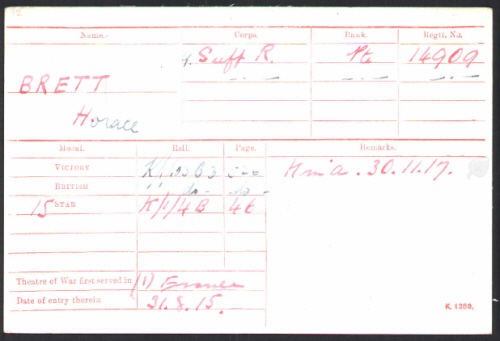 Name. Corps. Rank. Regtl. No.
Suff R. Pte 14909
BRETT
Horace
Medal. Roll. Page. Remarks.
VICTORY
BRITISH do- do-
15 STAR K/1/4B 46
30.11.17.
Theatre of War first served in (1) France
Date of entry therein 31.8.15.
K. 1380.